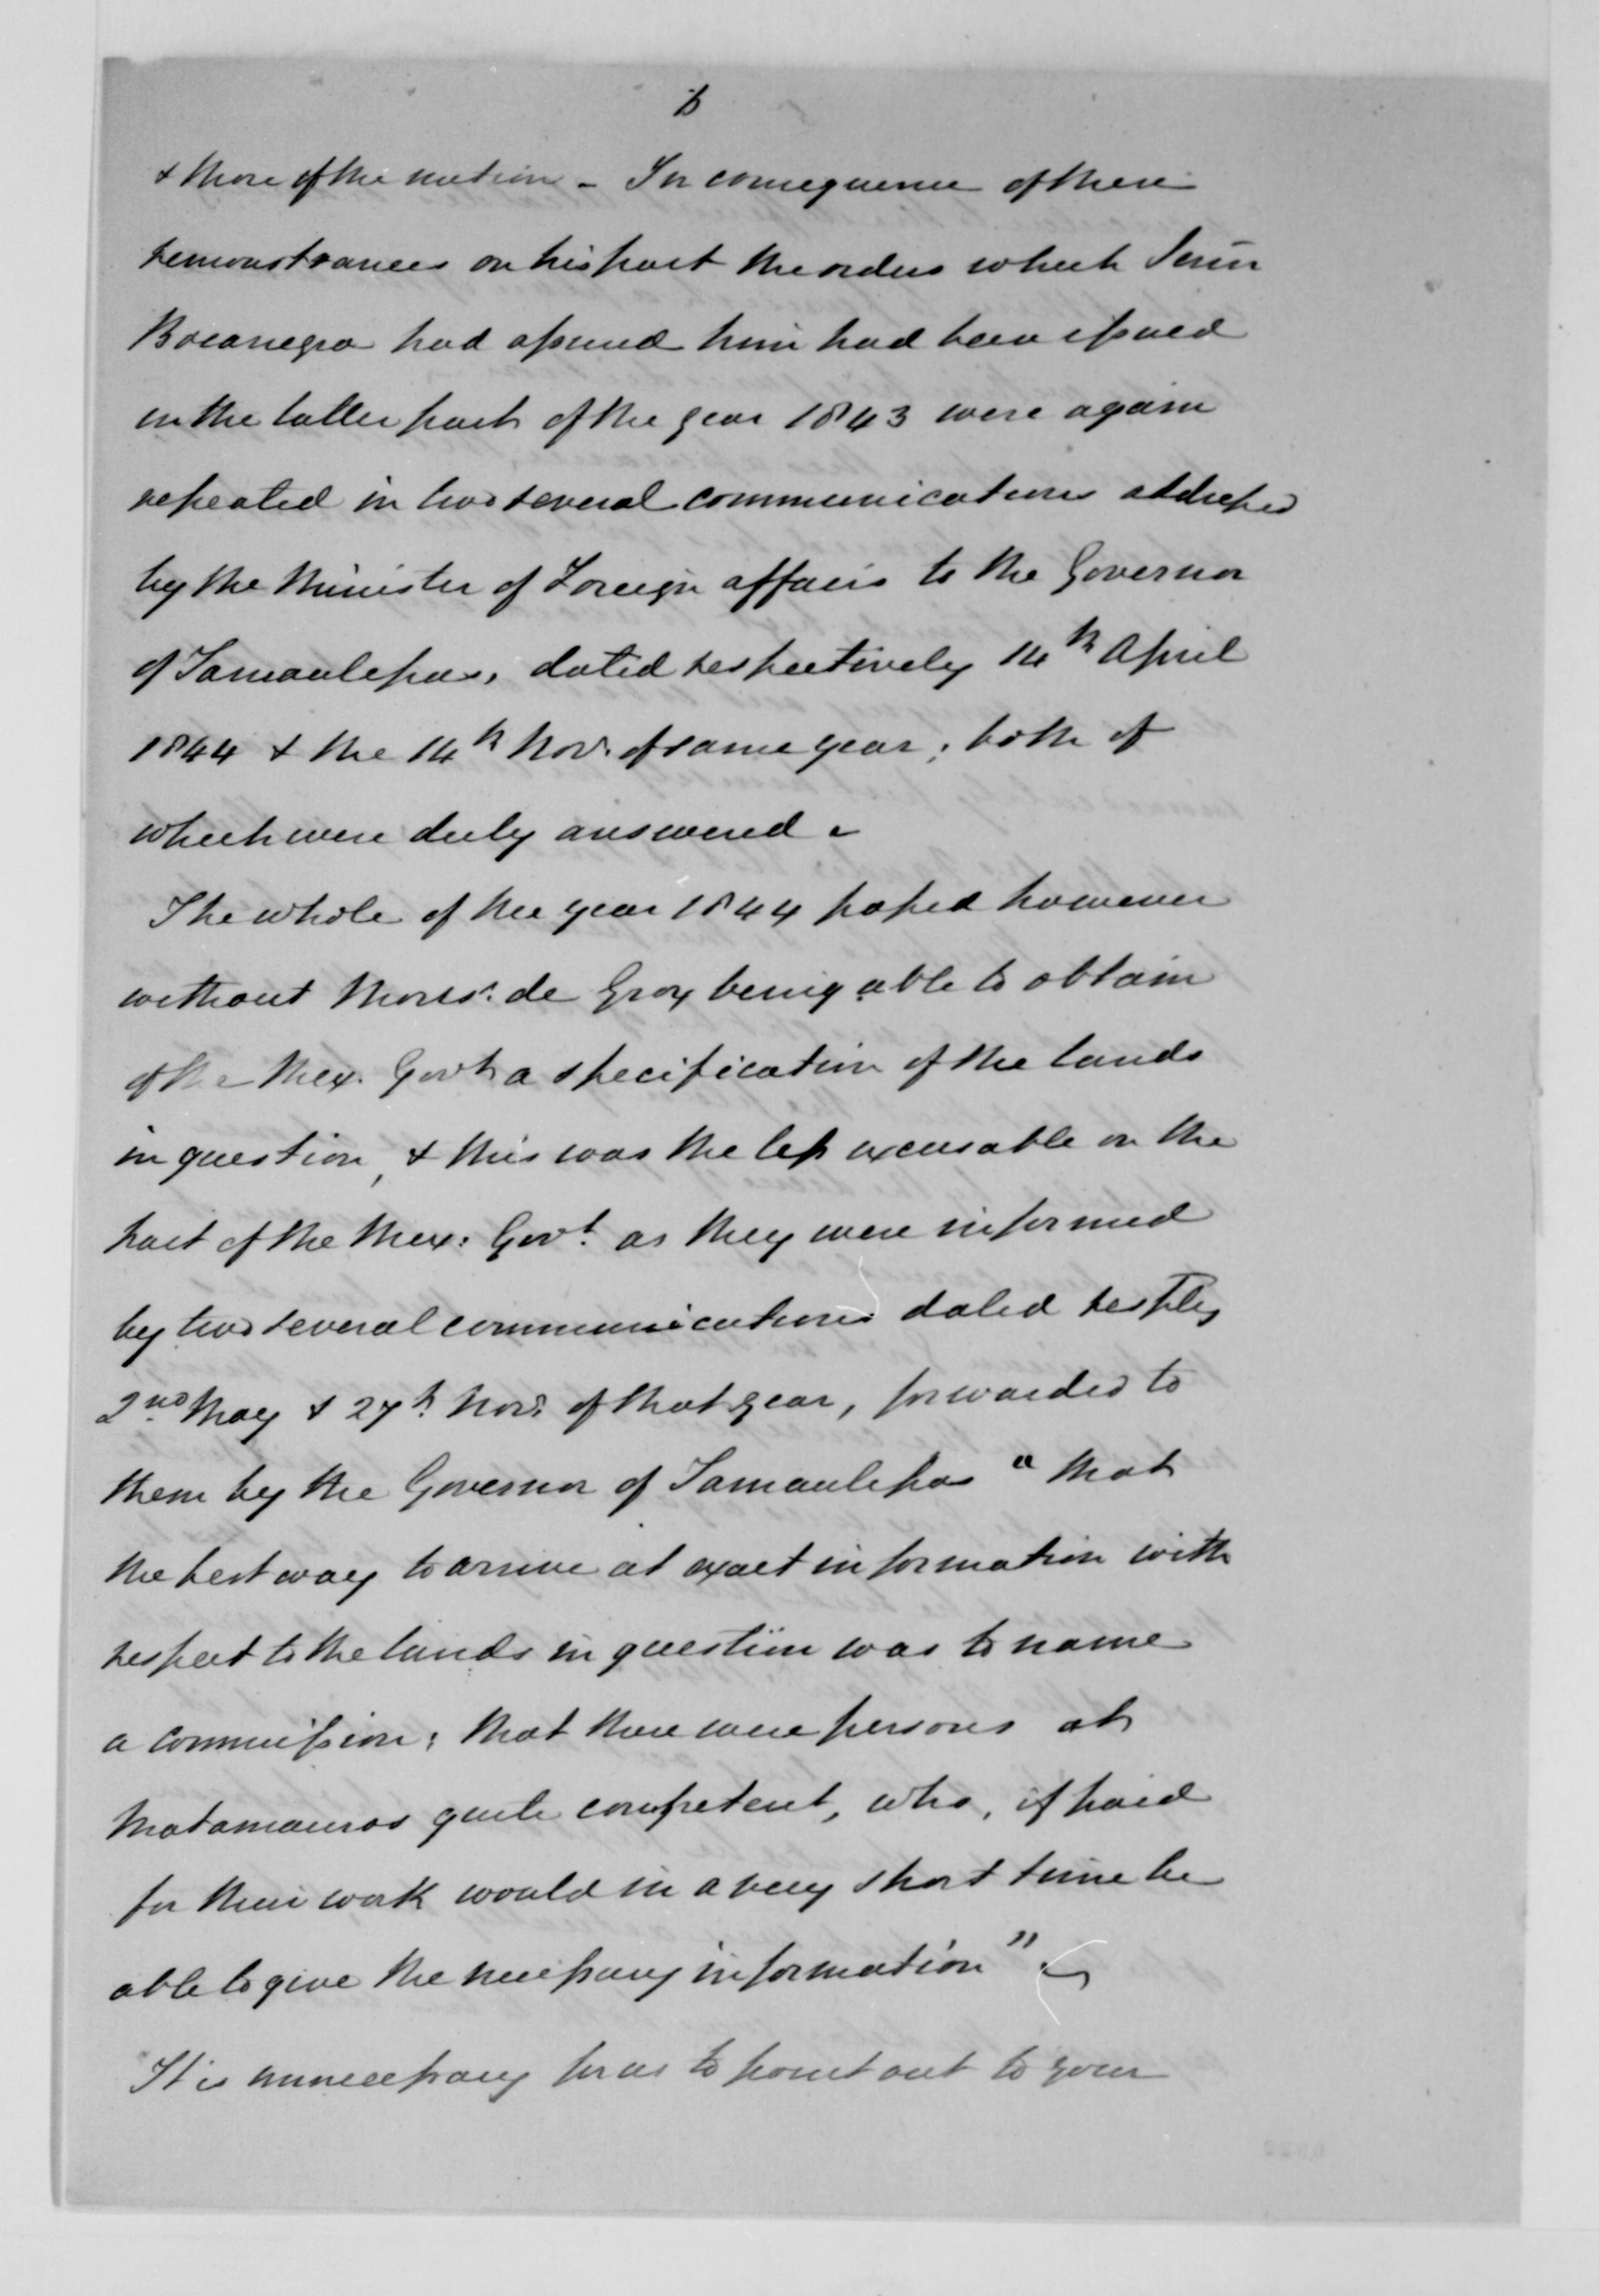 & those of the nation - In consequence of these
remonstrances on his part the orders which Senr
Bocanegra had assured him had been issued
in the latter part of the year 1843 were again
repeated in two several communications addressed
by the Minister of Foreign affairs to the Governor
of Tamaulipas, dated respectively 14th April
1844 & the 14th Novr. of same year; both of
which were duly answered -
The whole of the year 1844 passed however
without Monsr. de Grox being able to obtain
of the Mex. Govt a specification of the lands
in question, & this was the less excusable on the
part of the Mex: Govt. as they were informed
by two several communications dated resply
2nd May & 27th. Novr. of that year, forwarded to
them by the Governor of Tamaulipas "that
the best way to arrive at exact information with
respect to the lands in question was to name
a commission; that there were persons at
Matamouros quite competent, who, if paid
for their work would in a very short time be
able to give the necessary information".
It is unnecessary for us to point out to your